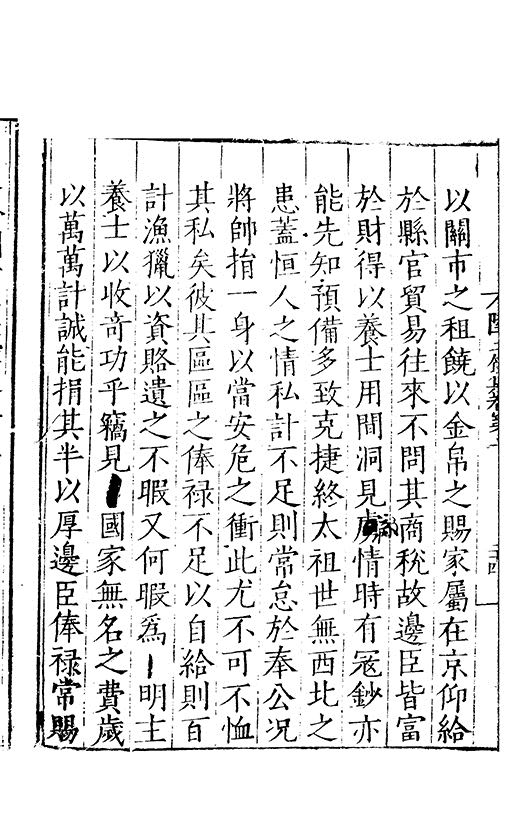 以關市之租饒以金帛之賜家屬在京仰給
於縣官貿易往來不問其商稅故邊臣皆富
於財得以養士用間洞見虜情時有冦鈔亦
能先知預備多致克捷終太祖世無西北之
患蓋恒人之情私計不足則常怠於奉公况
將帥捐一身以當安危之衝此尤不可不恤
其私矣彼其區區之俸禄不足以自給則百
計漁獵以資賂遺之不暇又何暇爲明主
養士以收竒功乎竊見國家無名之費歲
以萬萬計誠能捐其半以厚邊臣俸禄常賜